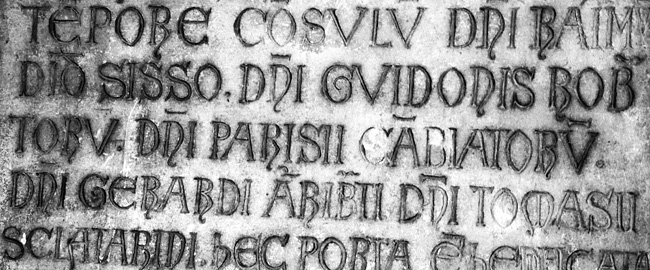 TEPORE CO̅SVLV DN̅I RAIMV
DIO̅ SISSO. DN̅I GVIDONIS ROB̅
TORV̅. DN̅I PARISII CA̅BIATORV̅.
DN̅I GERARDI A̅RIB̅TI DN̅I TOMASII
SCLATARIDI. hEC PORTA